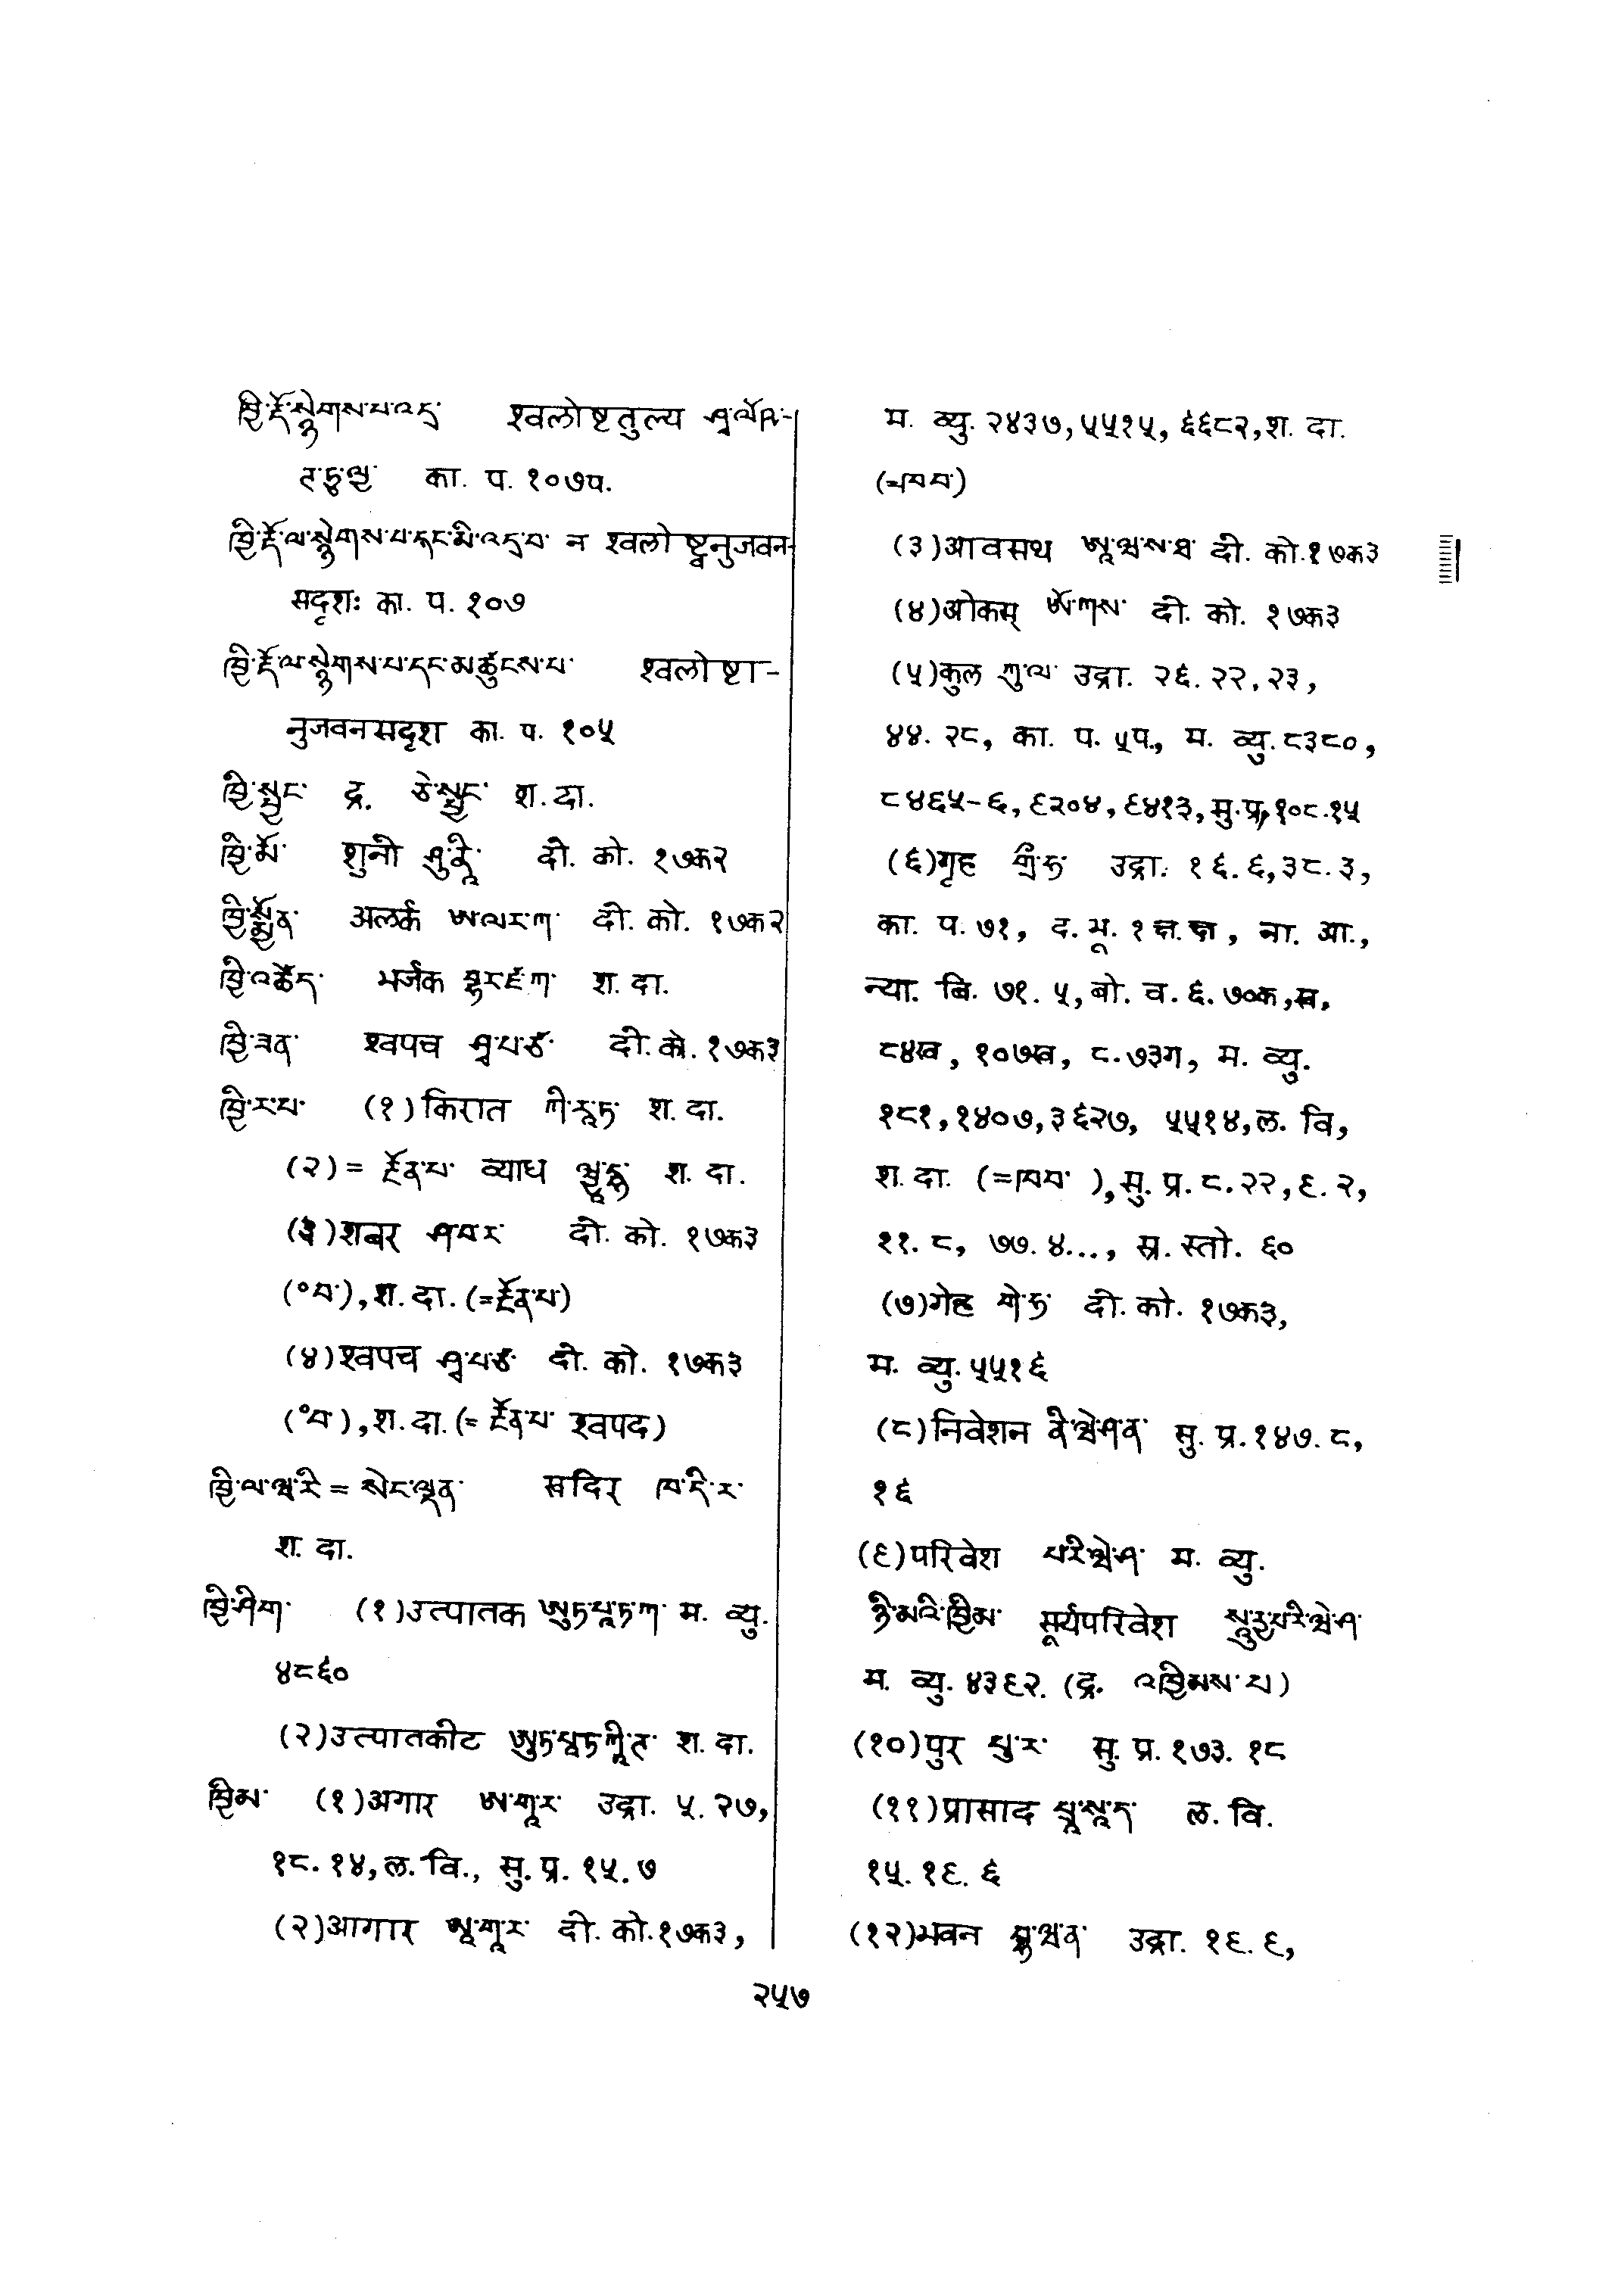 ཁྱི་རྡོ་སྙེགས་པ་འདྲ་ श्वलोष्टतुल्य ཤྭ་ལོཥ-
ཊ་ཏུ་ལྱ་ का. प. १०७प.
ཁྱི་རྡོ་ལ་སྙེགས་པ་དང་མི་འདྲ་བ་ न श्वलोष्ट्वनुजवन-
सदृशः का. प. १०७
ཁྱི་རྡོ་ལ་སྙེགས་པ་དང་མཚུངས་པ་ श्वलोष्टा-
नुजवनसदृश का. प. १०५
ཁྱི་སྤྱང་ द्र. ཅེ་སྤྱང་ श. दा.
ཁྱི་མོ་ शुनी ཤུ་ནཱི་ दी. को. १७क२
ཁྱི་སྨྱོན་ अलर्क ཨ་ལ་ར་ཀ་ दी. को. १७क२
ཁྱི་འཚོད་ भर्जक བྷ་ར་ཛ་ཀ་ श. दा.
ཁྱི་ཟན་ श्वपच ཤྭ་པ་ཙ་ दी. को. १७क३
ཁྱི་ར་པ་ (१)किरात ཀི་རཱ་ཏ་ श. दा.
(२)= རྔོན་པ་ व्याध བྱཱ་དྷ་ श. दा.
(३)शबर ཤ་བ་ར་ दी. को. १७क३
(°བ་), श. दा. (=རྔོན་པ)
(४)श्वपच ཤྭ་པ་ཙ་ दी. को. १७क३
(°བ་), श. दा. (= རྔོན་པ་ श्वपद)
ཁྱི་ལ་ཝ་རི = སེང་ལྡན་ खदिर ཁ་དི་ར་
श. दा.
ཁྱི་ཤིག་ (१)उत्पातक ཨུཏ་པཱ་ཏ་ཀ་ म. व्यु.
४८६०
(२)उत्पातकीट ཨུཏ་པཱ་ཏ་ཀཱི་ཊ་ श. दा.
ཁྱིམ་ (१)अगार ཨ་གཱ་ར་ उद्रा. ५. २७,
१८. १४, ल. वि., सु. प्र. १५. ७
(२)आगार ཨཱ་གཱ་ར་ दी. को. १७क३,
म. व्यु. २४३७, ५५१५, ६६८२, श. दा.
(=ཁབ་)
(३)आवसथ ཨཱ་ཝ་ས་ཐ་ दी. को. १७क३
(४)ओकस् ཨོ་ཀས་ दी. को. १७क३
(५)कुल ཀུ་ལ་ उद्रा. २६. २२, २३,
४४. २८, का. प. ५प., म. व्यु. ८३८०,
८४६५-६, ९२०४, ९४१३, सु. प्र, १०८.१५
(६)गृह གྲྀ་ཧ་ उद्रा. १६. ६, ३८. ३,
का. प. ७१, द. भू. १ ज्ञ. ज्ञ, ना. आ.,
न्या. बि. ७१. ५, बो. च. ६. ७०क, ख,
८४ख, १०७ख, ८. ७३ग, म. व्यु.
१८१, १४०७, ३६२७, ५५१४, ल. वि,
श. दा. (=ཁབ་), सु. प्र. ८. २२, ९. २,
११. ८, ७७. ४..., स्र. स्तो. ६०
(७)गेह གེ་ཧ་ दी. को. १७क३,
म. व्यु. ५५१६
(८)निवेशन ནི་ཝེ་ཤ་ན་ सु. प्र. १४७. ८,
१६
(९)परिवेश པ་རི་ཝེ་ཤ་ म. व्यु.
ཉི་མའི་ཁྱིམ་ सूर्यपरिवेश སཱུརྱ་པ་རི་ཝེ་ཤ་
म. व्यु. ४३९२. (द्र. འཁྱིམས་པ)
(१०)पुर པུ་ར་ सु. प्र. १७३. १८
(११)प्रासाद པྲཱ་སཱ་ད་ ल. वि.
१५. १९. ६
(१२)भवन བྷ་ཝ་ན་ उद्रा. १९. ९,
२५७